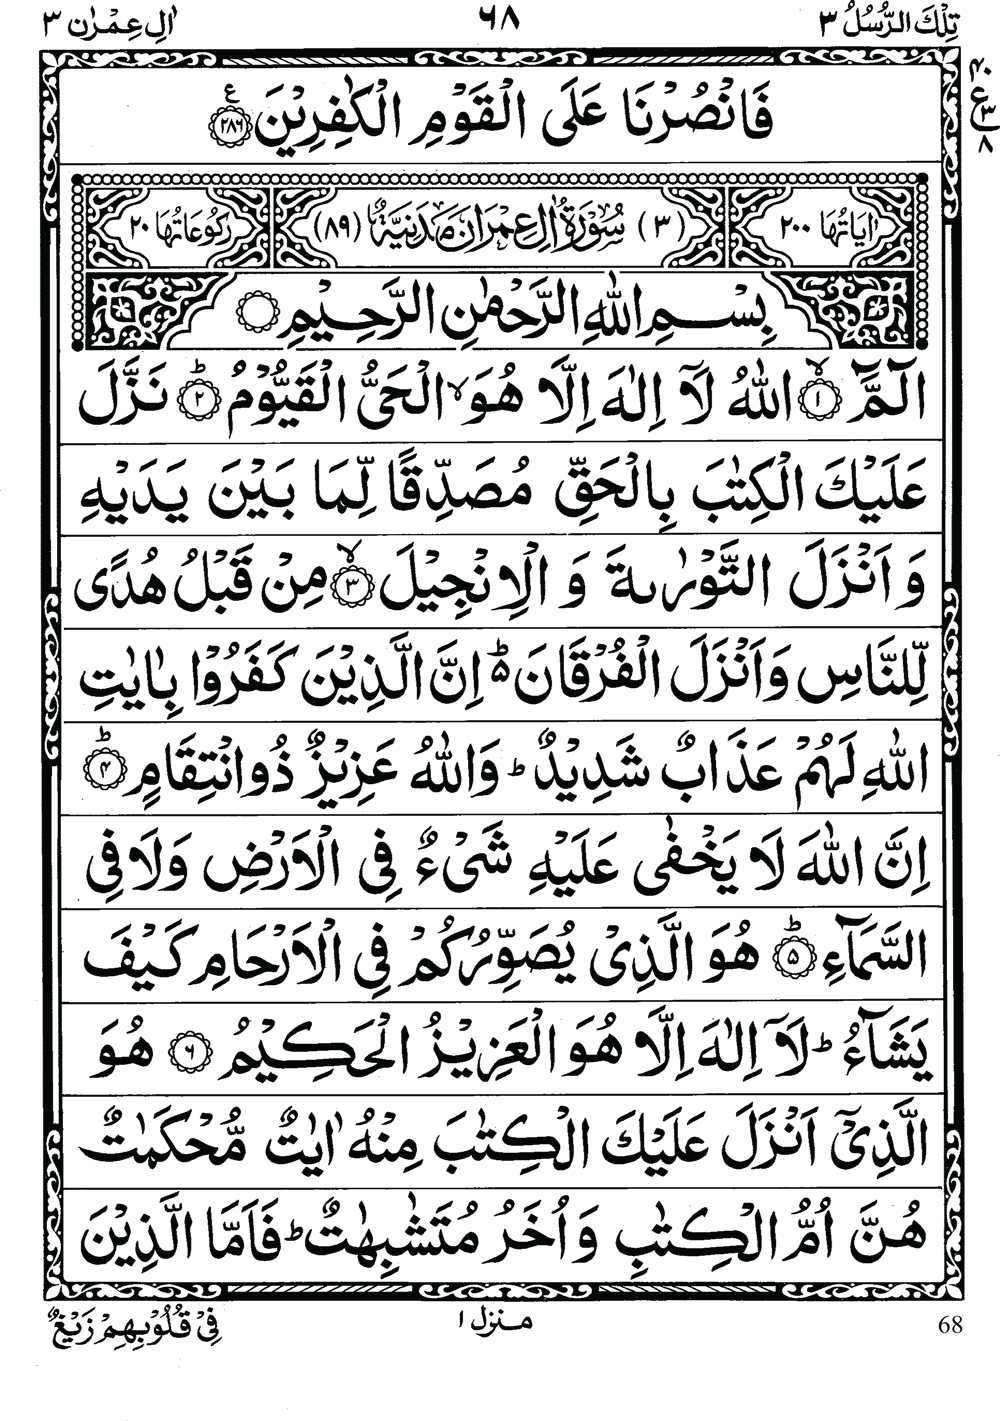 تِلْكَ الرُّسُلُ ٣
٦٨
اٰلِ عِمْرٰن ٣
٤٠
ع
٣
٨
فَانْصُرْنَا عَلَى الْقَوْمِ الْكٰفِرِيْنَ ع ٢٨٦
اٰيَاتُهَا ٢٠٠ (٣) سُوْرَةُ اٰلِ عِمْرَانَ مَدَنِيَّةٌ (٨٩) رُكُوْعَاتُهَا ٢٠
بِسْمِ اللهِ الرَّحْمٰنِ الرَّحِيْمِ
الٓمَّٓ ۙ ١ اللهُ لَآ اِلٰهَ اِلَّا هُوَ ۙ الْحَيُّ الْقَيُّوْمُ ؕ ٢ نَزَّلَ
عَلَيْكَ الْكِتٰبَ بِالْحَقِّ مُصَدِّقًا لِّمَا بَيْنَ يَدَيْهِ
وَ اَنْزَلَ التَّوْرٰىةَ وَ الْاِنْجِيْلَ ۙ ٣ مِنْ قَبْلُ هُدًى
لِّلنَّاسِ وَاَنْزَلَ الْفُرْقَانَ ؕ۵ اِنَّ الَّذِيْنَ كَفَرُوْا بِاٰيٰتِ
اللهِ لَهُمْ عَذَابٌ شَدِيْدٌ ؕ وَاللهُ عَزِيْزٌ ذُوانْتِقَامٍ ؕ ۴
اِنَّ اللهَ لَا يَخْفٰى عَلَيْهِ شَيْءٌ فِي الْاَرْضِ وَلَا فِي
السَّمَآءِ ؕ ۵ هُوَ الَّذِيْ يُصَوِّرُكُمْ فِي الْاَرْحَامِ كَيْفَ
يَشَآءُ ؕ لَآ اِلٰهَ اِلَّا هُوَ الْعَزِيْزُ الْحَكِيْمُ ٦ هُوَ
الَّذِيْٓ اَنْزَلَ عَلَيْكَ الْكِتٰبَ مِنْهُ اٰيٰتٌ مُّحْكَمٰتٌ
هُنَّ اُمُّ الْكِتٰبِ وَاُخَرُ مُتَشٰبِهٰتٌ ؕ فَاَمَّا الَّذِيْنَ
68
منزل ١
فِيْ قُلُوْبِهِمْ زَيْغٌ